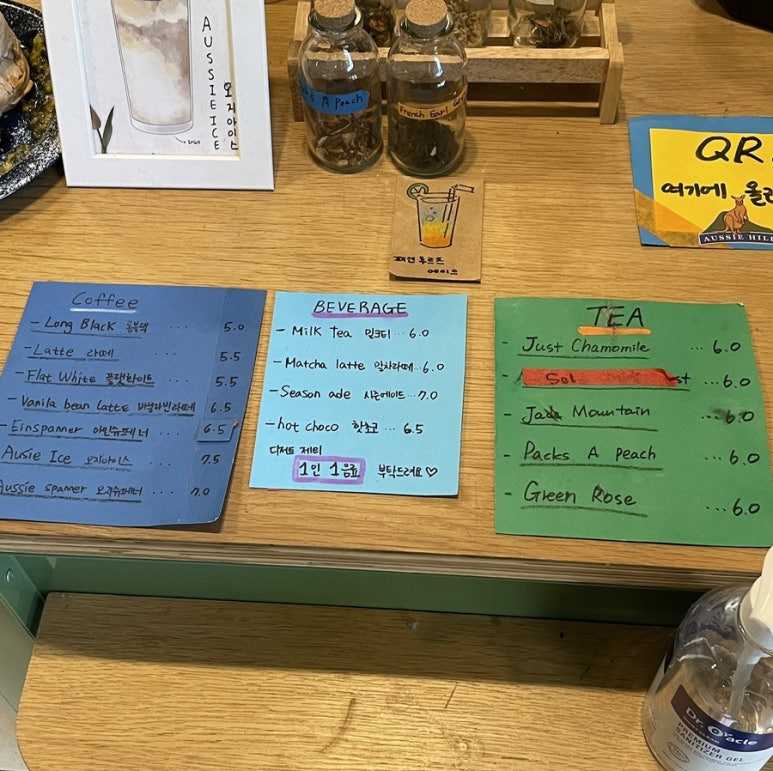 AUSSIE ICE
오지아이스
Packs A Peach
French Earl Grey
QR
여기에 올려
AUSSIE HILL
Coffee
- Long Black 롱블랙 ... 5.0
- Latte 라떼 ... 5.5
- Flat White 플랫화이트 5.5
- Vanila bean latte 바닐라빈라떼 6.5
- Einspanner 아인슈페너 6.5
Ausie Ice 오지아이스 .... 7.5
Aussie spanner 오지슈페너 .... 7.0
BEVERAGE
- Milk Tea 밀크티 ... 6.0
- Matcha latte 말차라떼 ... 6.0
- Season ade 시즌에이드 ... 7.0
- hot choco 핫초코 ... 6.5
1인 1음료 부탁드려요♡
TEA
- Just Chamomile ... 6.0
- Sol st ... 6.0
- Jade Mountain ... 6.0
- Packs A peach ... 6.0
- Green Rose ... 6.0
Dr. Oracle
PREMIUM
SANITIZER GEL